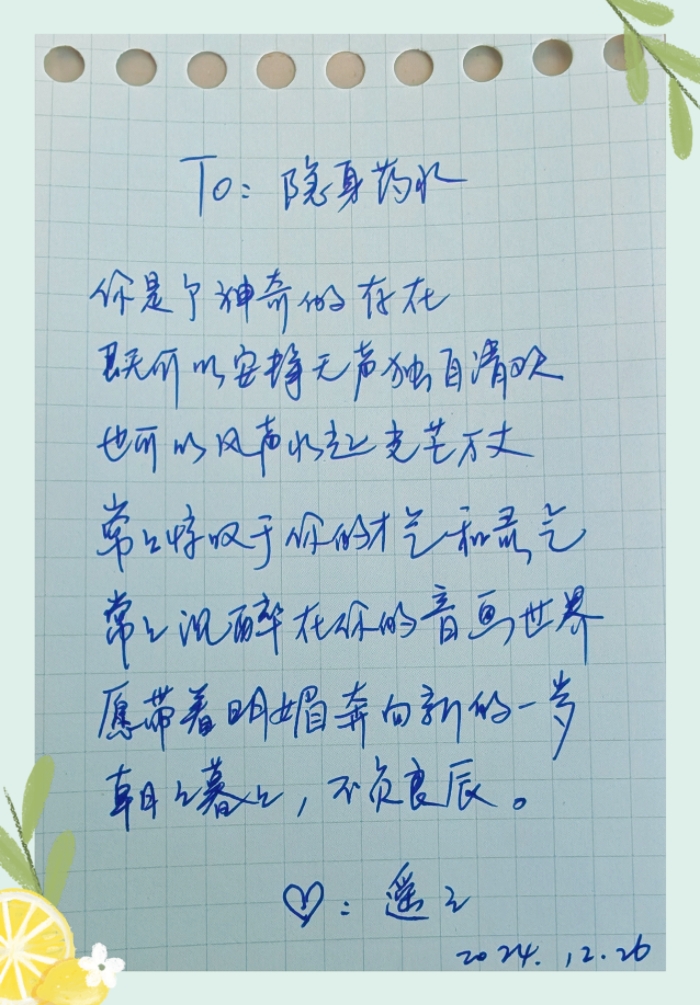 To: 隐身药水
你是个神奇的存在
既可以安静无声独自清欢
也可以风声水起光芒万丈
常々惊叹于你的才气和灵气
常々沉醉在你的音画世界
愿带着明媚奔向新的一岁
朝々暮々，不负良辰。
♡: 遥々
2024.12.26